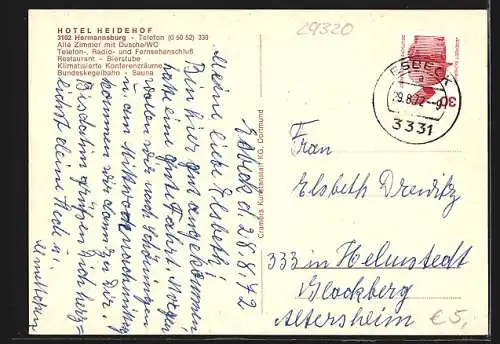 HOTEL HEIDEHOF
3102 Hermannsburg - Telefon (0 50 52) 333
Alle Zimmer mit Dusche/WC
Telefon-, Radio- und Fernsehanschluß
Restaurant - Bierstube
Klimatisierte Konferenzräume
Bundeskegelbahn - Sauna
29320
ESBECK
a
29.8.72-9
3331
30
Cramers Kunstanstalt KG, Dortmund
Esbeck d. 28.8.72
Meine liebe Elsbeth!
Bin hier gut angekommen,
hatte eine gute Fahrt. Morgen
wollen wir nach Schöningen
u. am Mittwoch nachmittag
kommen wir dann zu Dir.
Bis dahin grüßen Dich herz=
lichst deine Hedi u.
Frau
Elsbeth Drewitz
333 in Helmstedt
Glockberg
Altersheim
€ 5,-